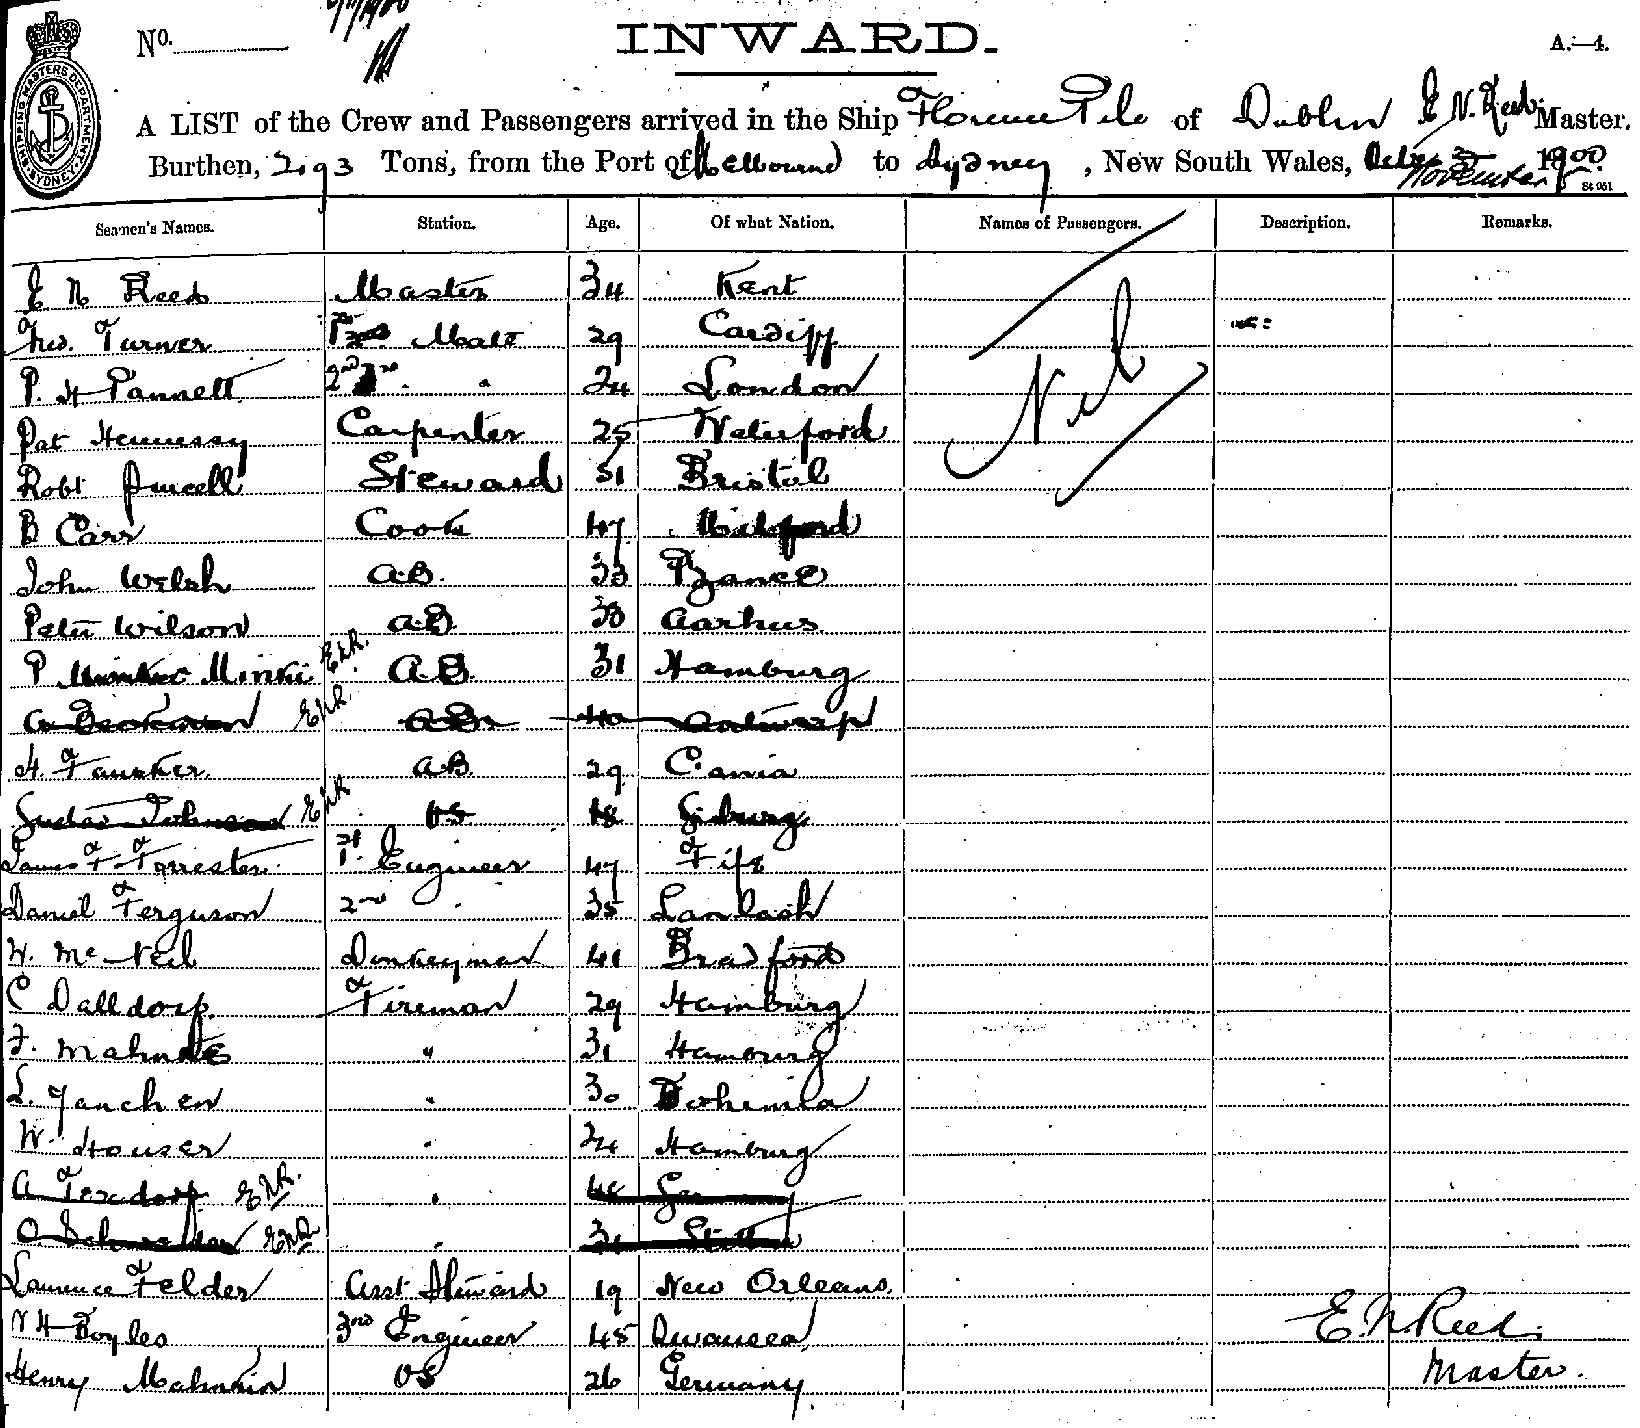 No. INWARD. A.—4.
SHIPPING MASTERS DEPARTMENT. SYDNEY.
A LIST of the Crew and Passengers arrived in the Ship Florence Pile of Dublin E. N. Reed Master.
Burthen, 2193 Tons, from the Port of Melbourne to Sydney, New South Wales, November 5 1900
Seamen's Names. Station. Age. Of what Nation. Names of Passengers. Description. Remarks.
E N Reed Master 34 Kent
Turner Mate 29 Cardiff
P. H Pannell 2nd " 24 London
Nil
Pat Hennessy Carpenter 25 Waterford
Robt Purcell Steward 51 Bristol
B Carr Cook 47
John Welsh A.B. 33
Peter Wilson A.B. 38 Aarhus
P Minki E.N.R. A.B. 31 Hamburg
E.N.R. A.B. 40 Antwerp
H. A.B. 29
Gustav Johnson E.N.R. OS 18
James F. Forrester 1st Engineer 47 Fife
Daniel Ferguson 2nd " 35
W. McNeil Donkeyman 41 Bradford
C Dalldorp Fireman 29 Hamburg
F. " 31 Hamburg
L. Janchen " 30 Bohemia
W. Houser " 24 Hamburg
A E.N.R. "
O. E.N.R. " 31
Laurence Felder Asst Steward 19 New Orleans
Boyles 3rd Engineer 45 Swansea
E. N. Reed.
Henry OS 26 Germany
Master.